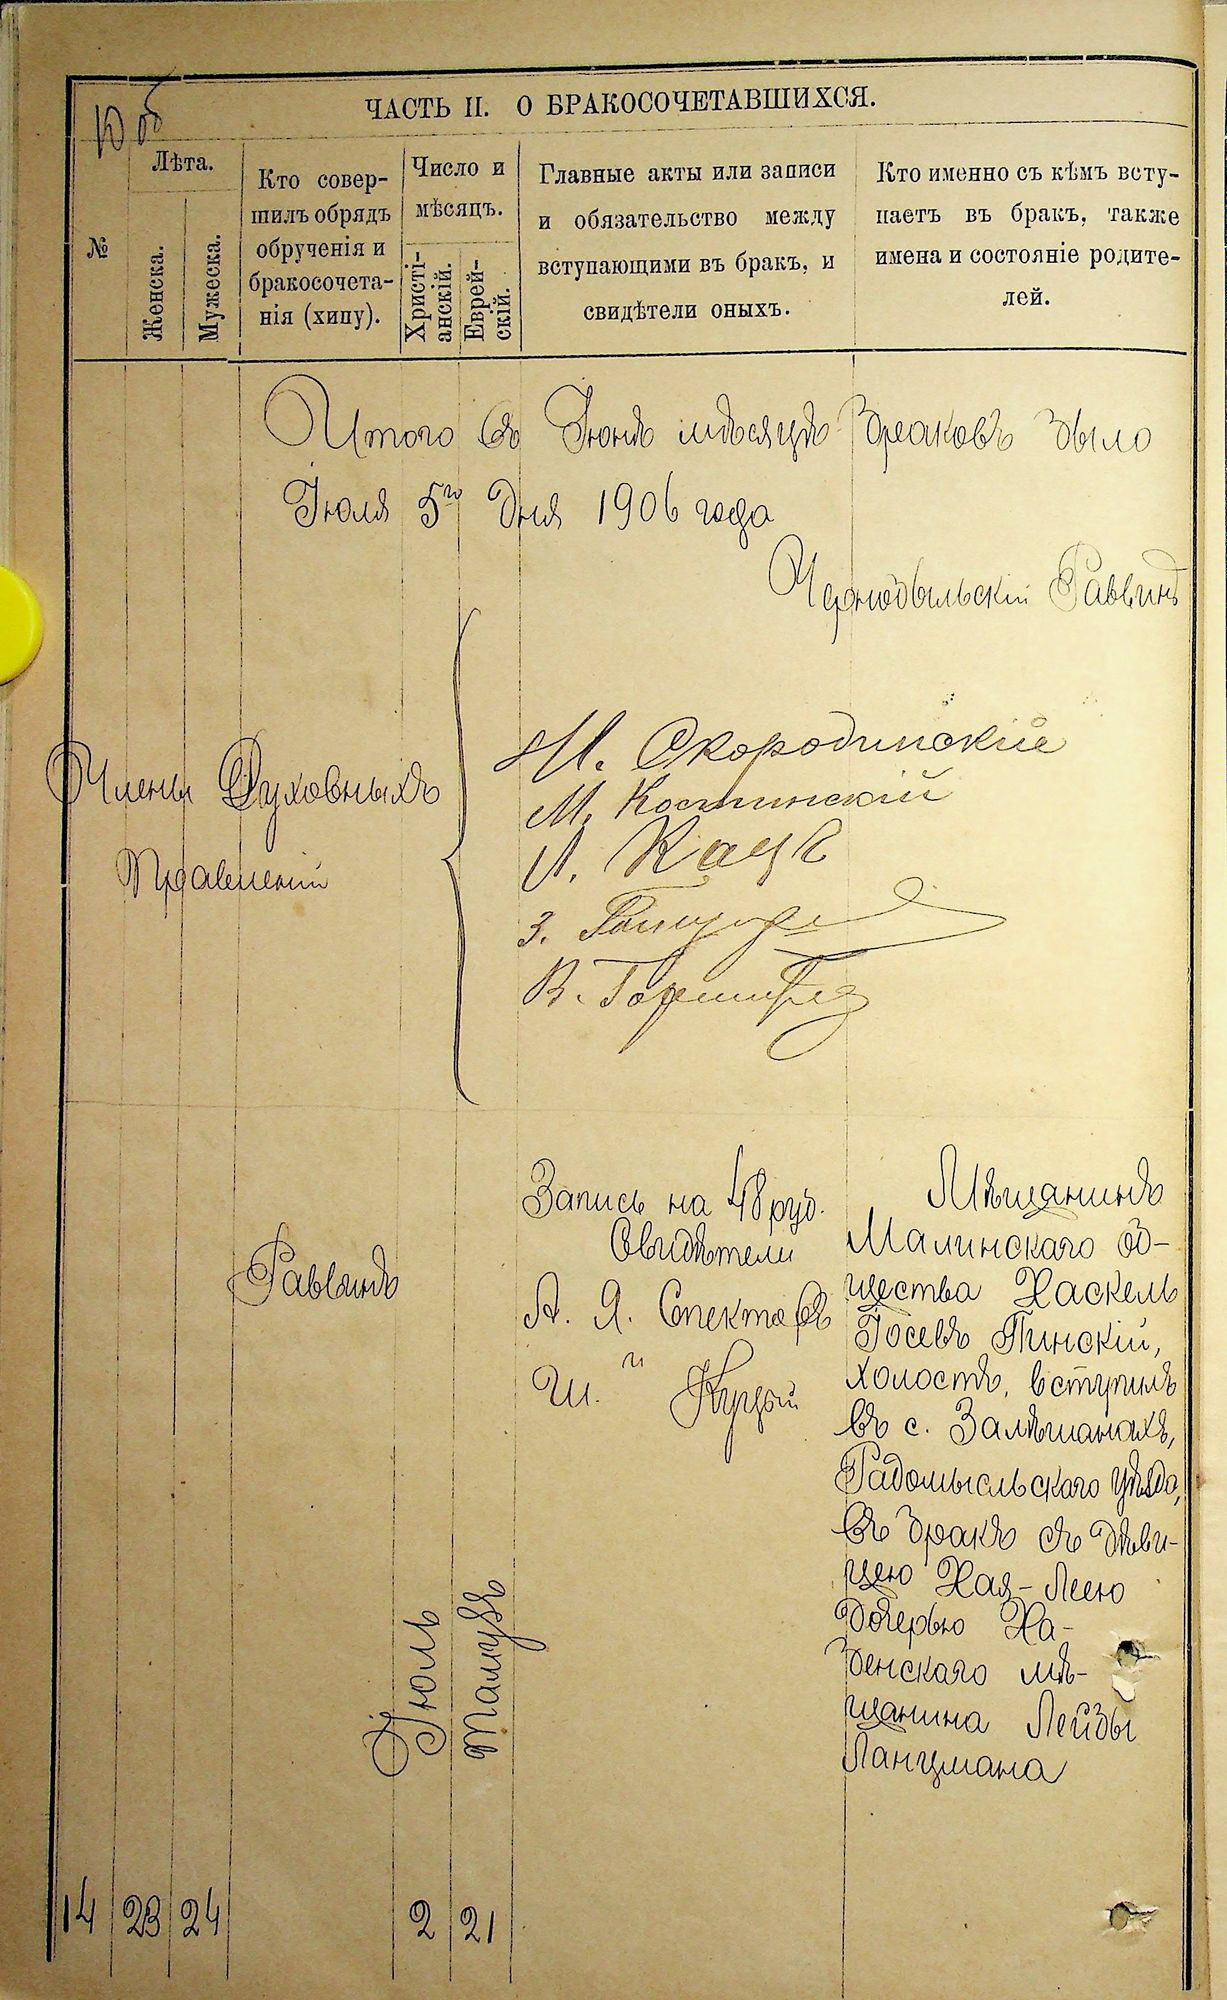 10 об
ЧАСТЬ II. О БРАКОСОЧЕТАВШИХСЯ.
№
Лѣта.
Женска.
Мужеска.
Кто совер-
шилъ обрядъ
обрученія и
бракосочета-
нія (хипу).
Число и
мѣсяцъ.
Христі-
анскій.
Еврей-
скій.
Главные акты или записи
и обязательство между
вступающими въ бракъ, и
свидѣтели оныхъ.
Кто именно съ кѣмъ всту-
паетъ въ бракъ, также
имена и состояніе родите-
лей.
Итого въ Іюнѣ мѣсяцѣ браковъ было
Іюля 5го дня 1906 года
Чернобыльскій Раввинъ
Члены Духовныхъ
Правленій
Скородинскій
М. Костинскій
Л. Кацъ
З.
В.
14
23
24
Раввинъ
Іюль
2
Тамузъ
21
Запись на 48 руб.
Свидѣтели
А. Я. Спекторъ
и
Ш. Куцый
Мѣщанинъ
Малинскаго об-
щества Хаскель
Іосевъ Пинскій,
холостъ, вступилъ
въ с. Залѣшанахъ,
Радомысльскаго уѣзда,
въ бракъ съ дѣви-
цею Хая-Леею
дочерью Ха-
бенскаго мѣ-
щанина Лейбы
Ланцмана